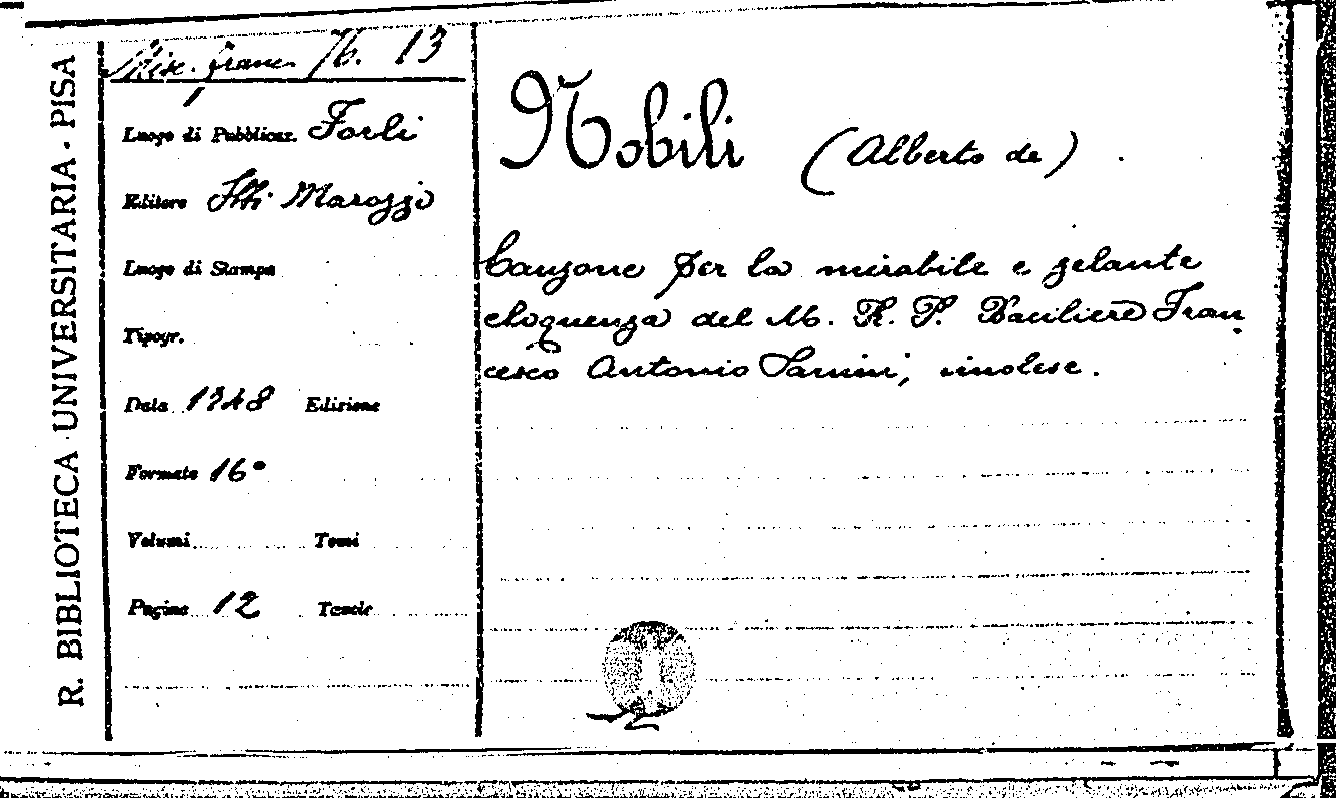 R. BIBLIOTECA UNIVERSITARIA - PISA
Misc. franc. 76. 13
Luogo di Pubblicaz. Forlì
Editore Flli Marozzi
Luogo di Stampa
Tipogr.
Data 1848 Edizione
Formato 16°
Volumi Tomi
Pagine 12 Tavole
Nobili (Alberto de).
Canzone per la mirabile e zelante
eloquenza del M. R. P. Baciliere Fran
cesco Antonio imolese.